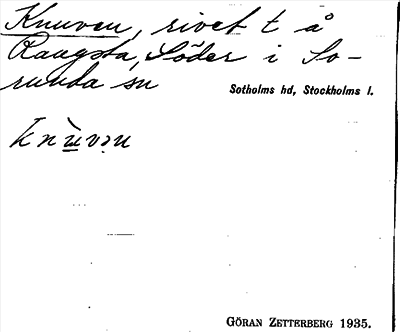 Knuven, rivet t å
Raagsta, Söder i So-
runda sn
Sotholms hd, Stockholms l.
knùvən
GÖRAN ZETTERBERG 1935.